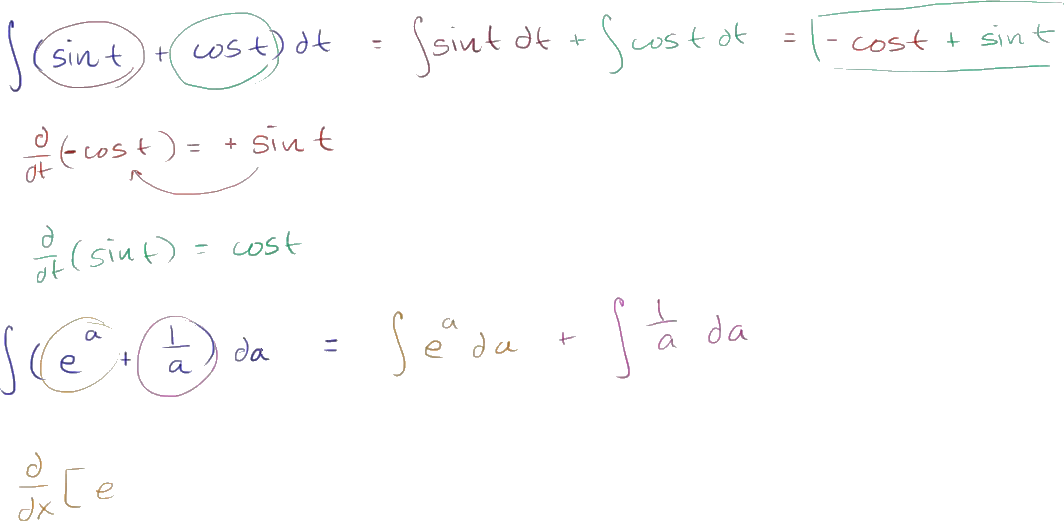 ∫(sin t + cos t) dt = ∫ sin t dt + ∫ cos t dt = - cos t + sin t
d/dt (- cos t) = + sin t
d/dt (sin t) = cos t
∫(e^a + 1/a) da = ∫ e^a da + ∫ 1/a da
d/dx [ e